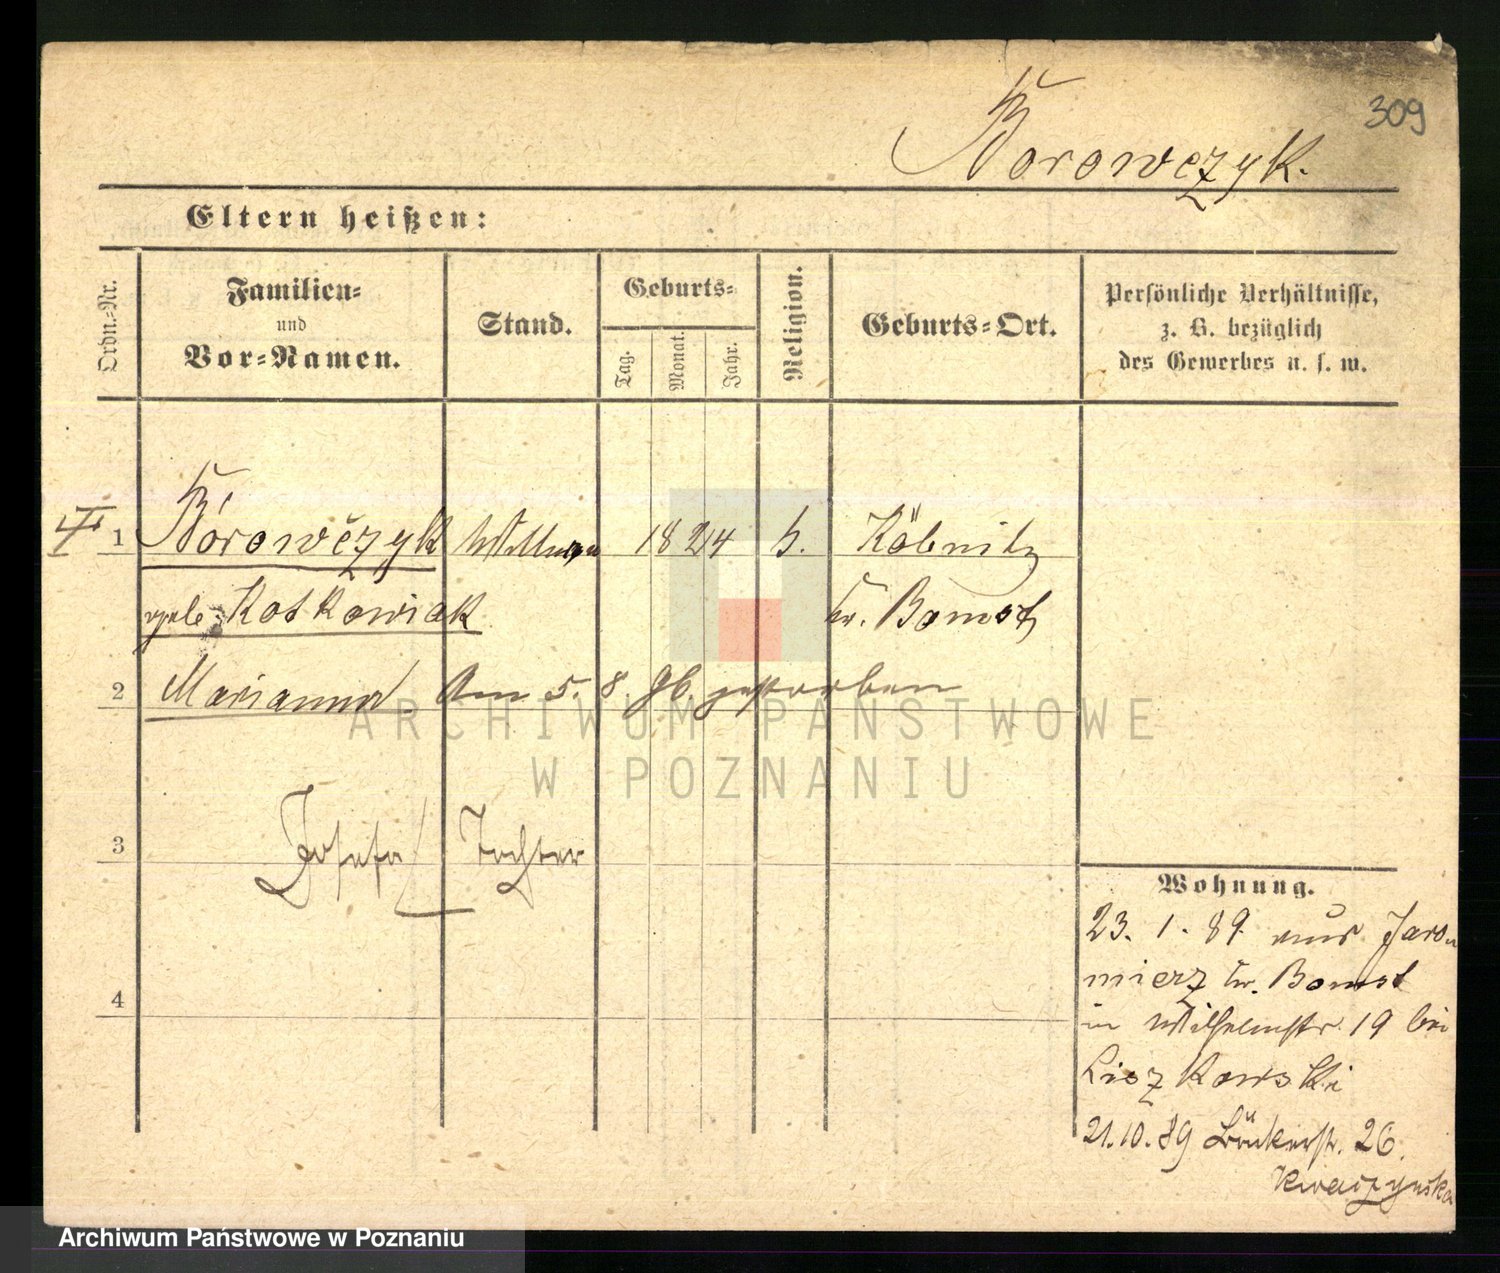 309
Borowczyk.
Eltern heißen:
Ordn.-Nr.
Familien-
und
Vor-Namen.
Stand.
Geburts-
Tag.
Monat.
Jahr.
Religion.
Geburts-Ort.
Persönliche Verhältnisse,
z. B. bezüglich
des Gewerbes u. s. w.
II
1 Borowczyk Wittwe 1824 k. Köbnitz
geb. Kotkowiak Kr. Bomst
2 Marianna Am 5. 8. 96. gestorben
3 Josefa Tochter
4
Wohnung.
23. 1. 89. aus Jaro-
mierz Kr. Bomst
in Wilhelmstr. 19 bei
Liszkowski
21.10.89 Bäckerstr. 26.
Kwaczynska
ARCHIWUM PAŃSTWOWE
W POZNANIU
Archiwum Państwowe w Poznaniu